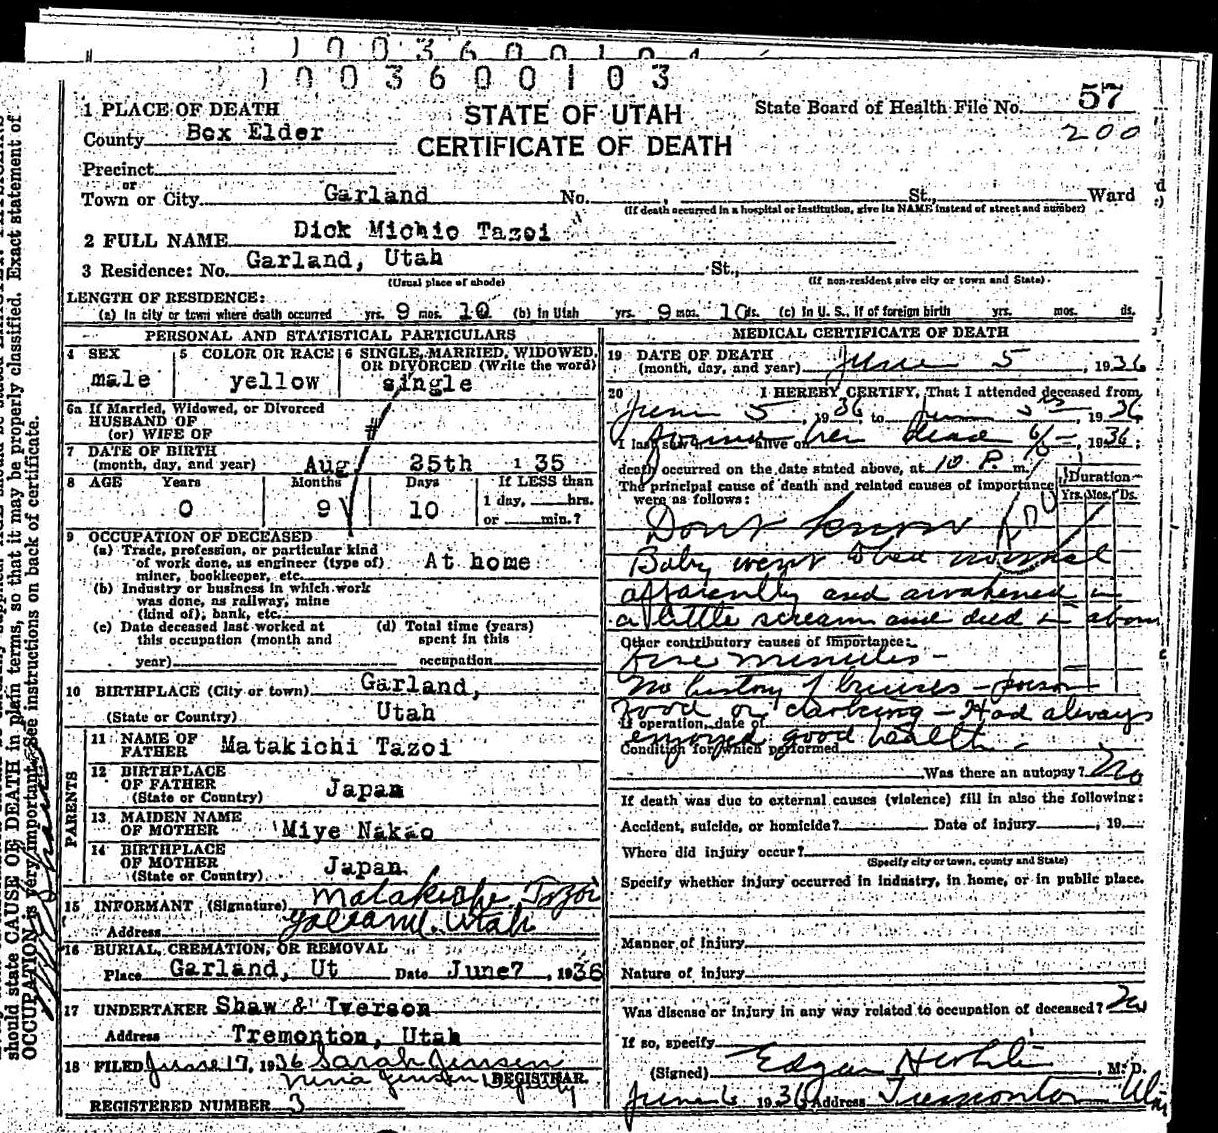 1003600103
1 PLACE OF DEATH
STATE OF UTAH
State Board of Health File No. 57
County Box Elder
200
CERTIFICATE OF DEATH
Precinct
or
Town or City Garland No. St., Ward
(If death occurred in a hospital or institution, give its NAME instead of street and number)
2 FULL NAME Dick Michio Tazoi
3 Residence: No. Garland, Utah St.,
(Usual place of abode) (If non-resident give city or town and State)
LENGTH OF RESIDENCE:
(a) In city or town where death occurred yrs. 9 mos. 10 (b) In Utah yrs. 9 mos. 10 ds. (c) In U. S., if of foreign birth yrs. mos. ds.
PERSONAL AND STATISTICAL PARTICULARS
4 SEX
male
5 COLOR OR RACE
yellow
6 SINGLE, MARRIED, WIDOWED, OR DIVORCED (Write the word)
single
6a If Married, Widowed, or Divorced
HUSBAND OF
(or) WIFE OF
7 DATE OF BIRTH
(month, day, and year) Aug 25th 1 35
8 AGE Years Months Days If LESS than
1 day, hrs.
0 9 10 or min.?
9 OCCUPATION OF DECEASED
(a) Trade, profession, or particular kind
of work done, as engineer (type of) At home
miner, bookkeeper, etc.
(b) Industry or business in which work
was done, as railway, mine
(kind of), bank, etc.
(c) Date deceased last worked at
this occupation (month and
year)
(d) Total time (years)
spent in this
occupation
10 BIRTHPLACE (City or town) Garland,
(State or Country) Utah
PARENTS
11 NAME OF
FATHER Matakichi Tazoi
12 BIRTHPLACE
OF FATHER Japan
(State or Country)
13 MAIDEN NAME
OF MOTHER Miye Nakao
14 BIRTHPLACE
OF MOTHER Japan
(State or Country)
15 INFORMANT (Signature) Tozoi
Address Garland, Utah
16 BURIAL, CREMATION, OR REMOVAL
Place Garland, Ut Date June 7, 1936
17 UNDERTAKER Shaw & Iverson
Address Tremonton, Utah
18 FILED June 17, 1936 Sarah Jensen
Nina Jensen Deputy REGISTRAR.
REGISTERED NUMBER 3
MEDICAL CERTIFICATE OF DEATH
19 DATE OF DEATH
(month, day, and year) June 5, 1936
20 I HEREBY CERTIFY, That I attended deceased from
June 5, 1936 to June 5, 1936
I last saw alive on dead 1936;
death occurred on the date stated above, at 10 P. m.
The principal cause of death and related causes of importance
were as follows:
Duration
Yrs. Mos. Ds.
Don't know
Baby went to bed normal
apparently and awakened in
a little scream and died in about
Other contributory causes of importance:
five minutes -
No history of bruises - poison
food or choking - Had always
If operation, date of
enjoyed good health -
Condition for which performed
Was there an autopsy? No
If death was due to external causes (violence) fill in also the following:
Accident, suicide, or homicide? Date of injury, 19
Where did injury occur?
(Specify city or town, county and State)
Specify whether injury occurred in industry, in home, or in public place.
Manner of Injury
Nature of Injury
Was disease or injury in any way related to occupation of deceased? No
If so, specify
(Signed) Edgar, M. D.
June 6 1936 Address Tremonton Utah
should state CAUSE OF DEATH in plain terms, so that it may be properly classified. Exact statement of
OCCUPATION is very important. See instructions on back of certificate.